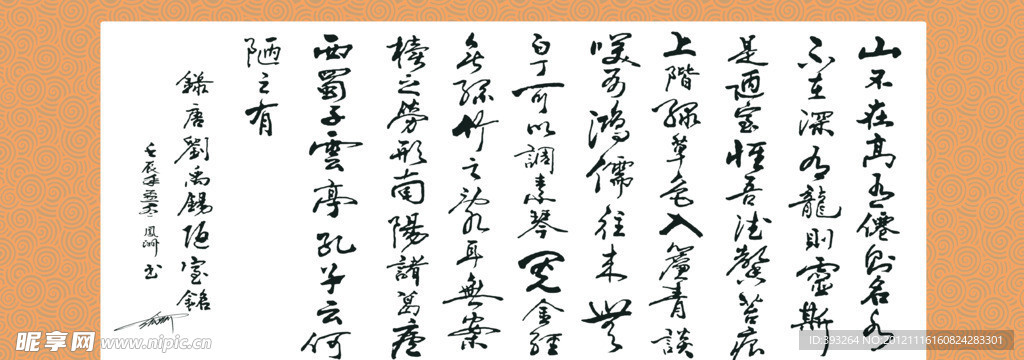 山不在高有僊則名水
不在深有龍則靈斯
是陋室惟吾德馨苔痕
上階綠草色入簾青談
笑有鴻儒往来無
白丁可以調素琴閱金經
無絲竹之亂耳無案
牘之勞形南陽諸葛廬
西蜀子雲亭孔子云何
陋之有
錄唐劉禹錫陋室銘
壬辰年
書
昵享网 www.nipic.cn
ID:393264 NO:20121116160824283301